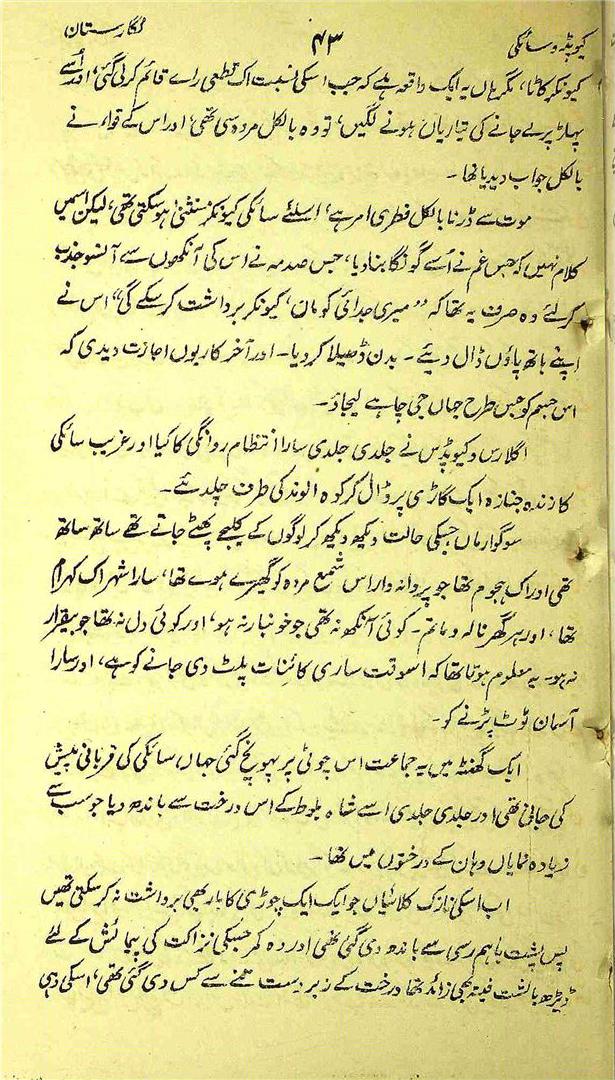 کیوپڈ و سائکی ۴۳ نگارستان
کیونکر کاٹا، مگر ہاں یہ ایک واقعہ ہے کہ جب اسکی نسبت اک قطعی راے قائم کر لی گئی، اور اُسے
پہاڑ پر لے جانے کی تیاریاں ہونے لگیں، تو وہ بالکل مردہ سی تھی، اور اس کے قواء نے
بالکل جواب دیدیا تھا۔
موت سے ڈرنا بالکل فطری امر ہے، اسلئے سائکی کیونکر مستثنیٰ ہو سکتی تھی، لیکن اسمیں
کلام نہیں کہ جس غم نے اُسے گونگا بنا دیا، جس صدمہ نے اس کی آنکھوں سے آنسو جذب
کر لئے وہ صرف یہ تھا کہ ”میری جدائی کو ماں، کیونکر برداشت کر سکے گی“ اس نے
اپنے ہاتھ پاؤں ڈال دیئے۔ بدن ڈھیلا کر دیا۔ اور آخر کار یوں اجازت دیدی کہ
اس جسم کو جس طرح جہاں جی چاہے لیجاؤ۔
اگلارس و کیوپڈس نے جلدی جلدی سارا انتظام روانگی کا کیا اور غریب سائکی
کا زندہ جنازہ ایک گاڑی پر ڈال کر کوہ الوند کی طرف چلدئے۔
سوگوار ماں جسکی حالت دیکھ دیکھ کر لوگوں کے کلیجے پھٹے جاتے تھے ساتھ ساتھ
تھی اور اک ہجوم تھا جو پروانہ وار اس شمع مردہ کو گھیرے ہوے تھا، سارا شہر اک کہرام
تھا، اور ہر گھر نالہ و ماتم۔ کوئی آنکھ نہ تھی جو خونبار نہ ہو، اور کوئی دل نہ تھا جو بیقرار
نہ ہو۔ یہ معلوم ہوتا تھا کہ اسوقت ساری کائنات پلٹ دی جانے کو ہے، اور سارا
آسمان ٹوٹ پڑنے کو۔
ایک گھنٹہ میں یہ جماعت اس چوٹی پر پہونچ گئی جہاں سائکی کی قربانی پیش
کی جانی تھی اور جلدی جلدی اسے شاہ بلوط کے اس درخت سے باندھ دیا جو سب سے
زیادہ نمایاں وہان کے درختوں میں تھا۔
اب اسکی نازک کلائیاں جو ایک ایک چوڑی کا بار بھی برداشت نہ کر سکتی تھیں
پس پشت باہم رسی سے باندھ دی گئی تھی اور وہ کمر جسکی نزاکت کی پیمائش کے لئے
ڈیڑھ بالشت فیتہ بھی زائد تھا درخت کے زبردست تنے سے کس دی گئی تھی، اسکی وہی